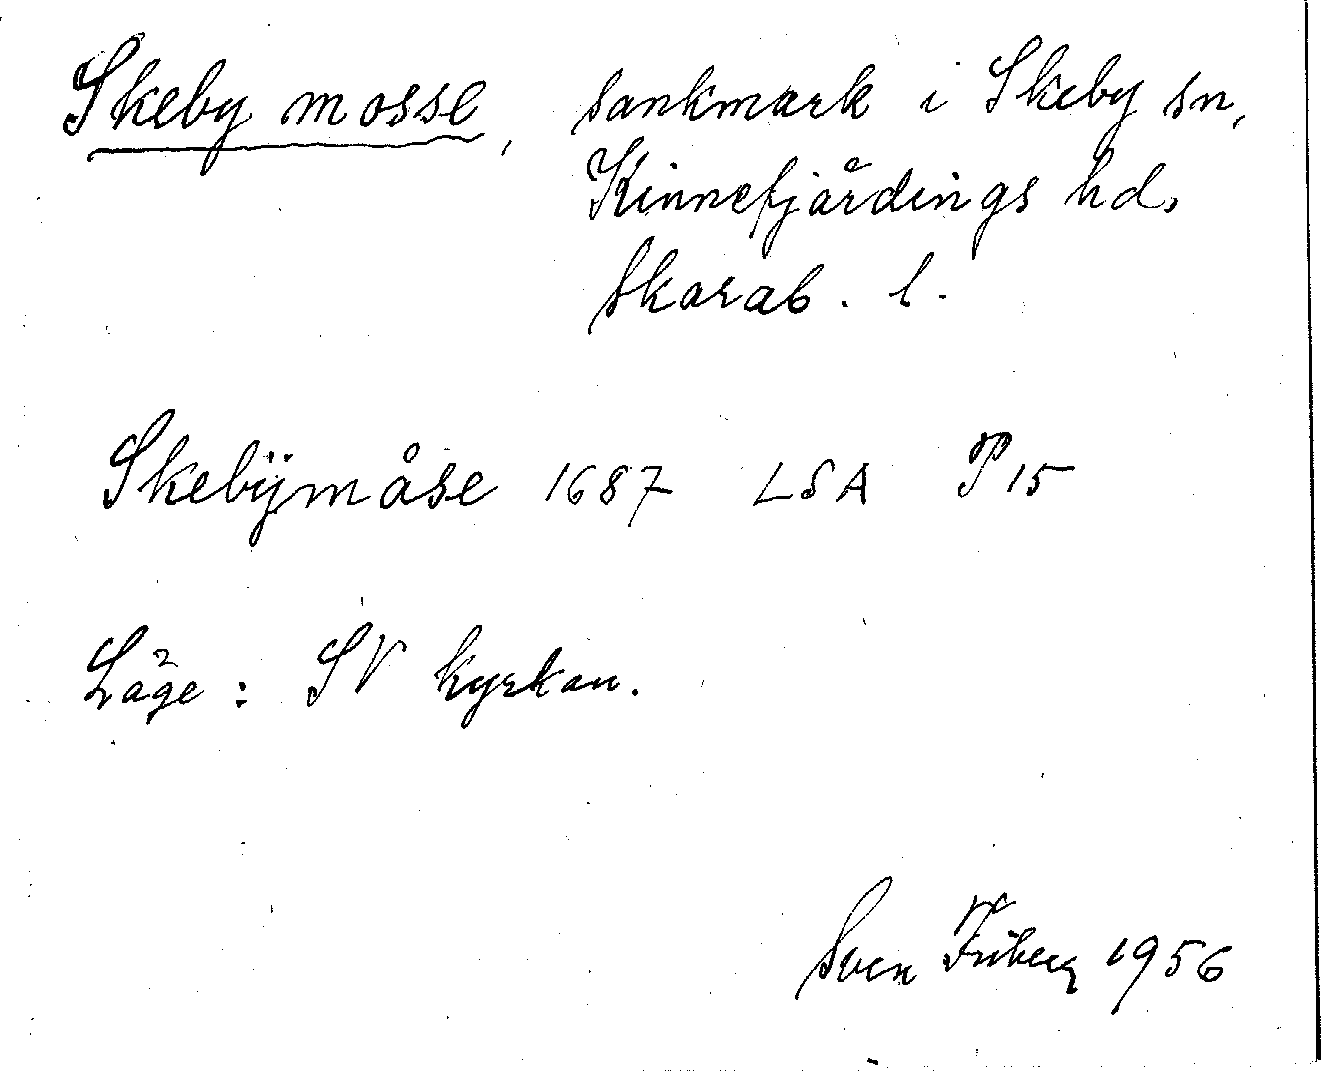 Skeby mosse, sankmark i Skeby sn,
Kinnefjärdings hd,
Skarab. l.
Skebÿmåse 1687 LSA P 15
Läge: SV kyrkan.
Sven Friberg 1956